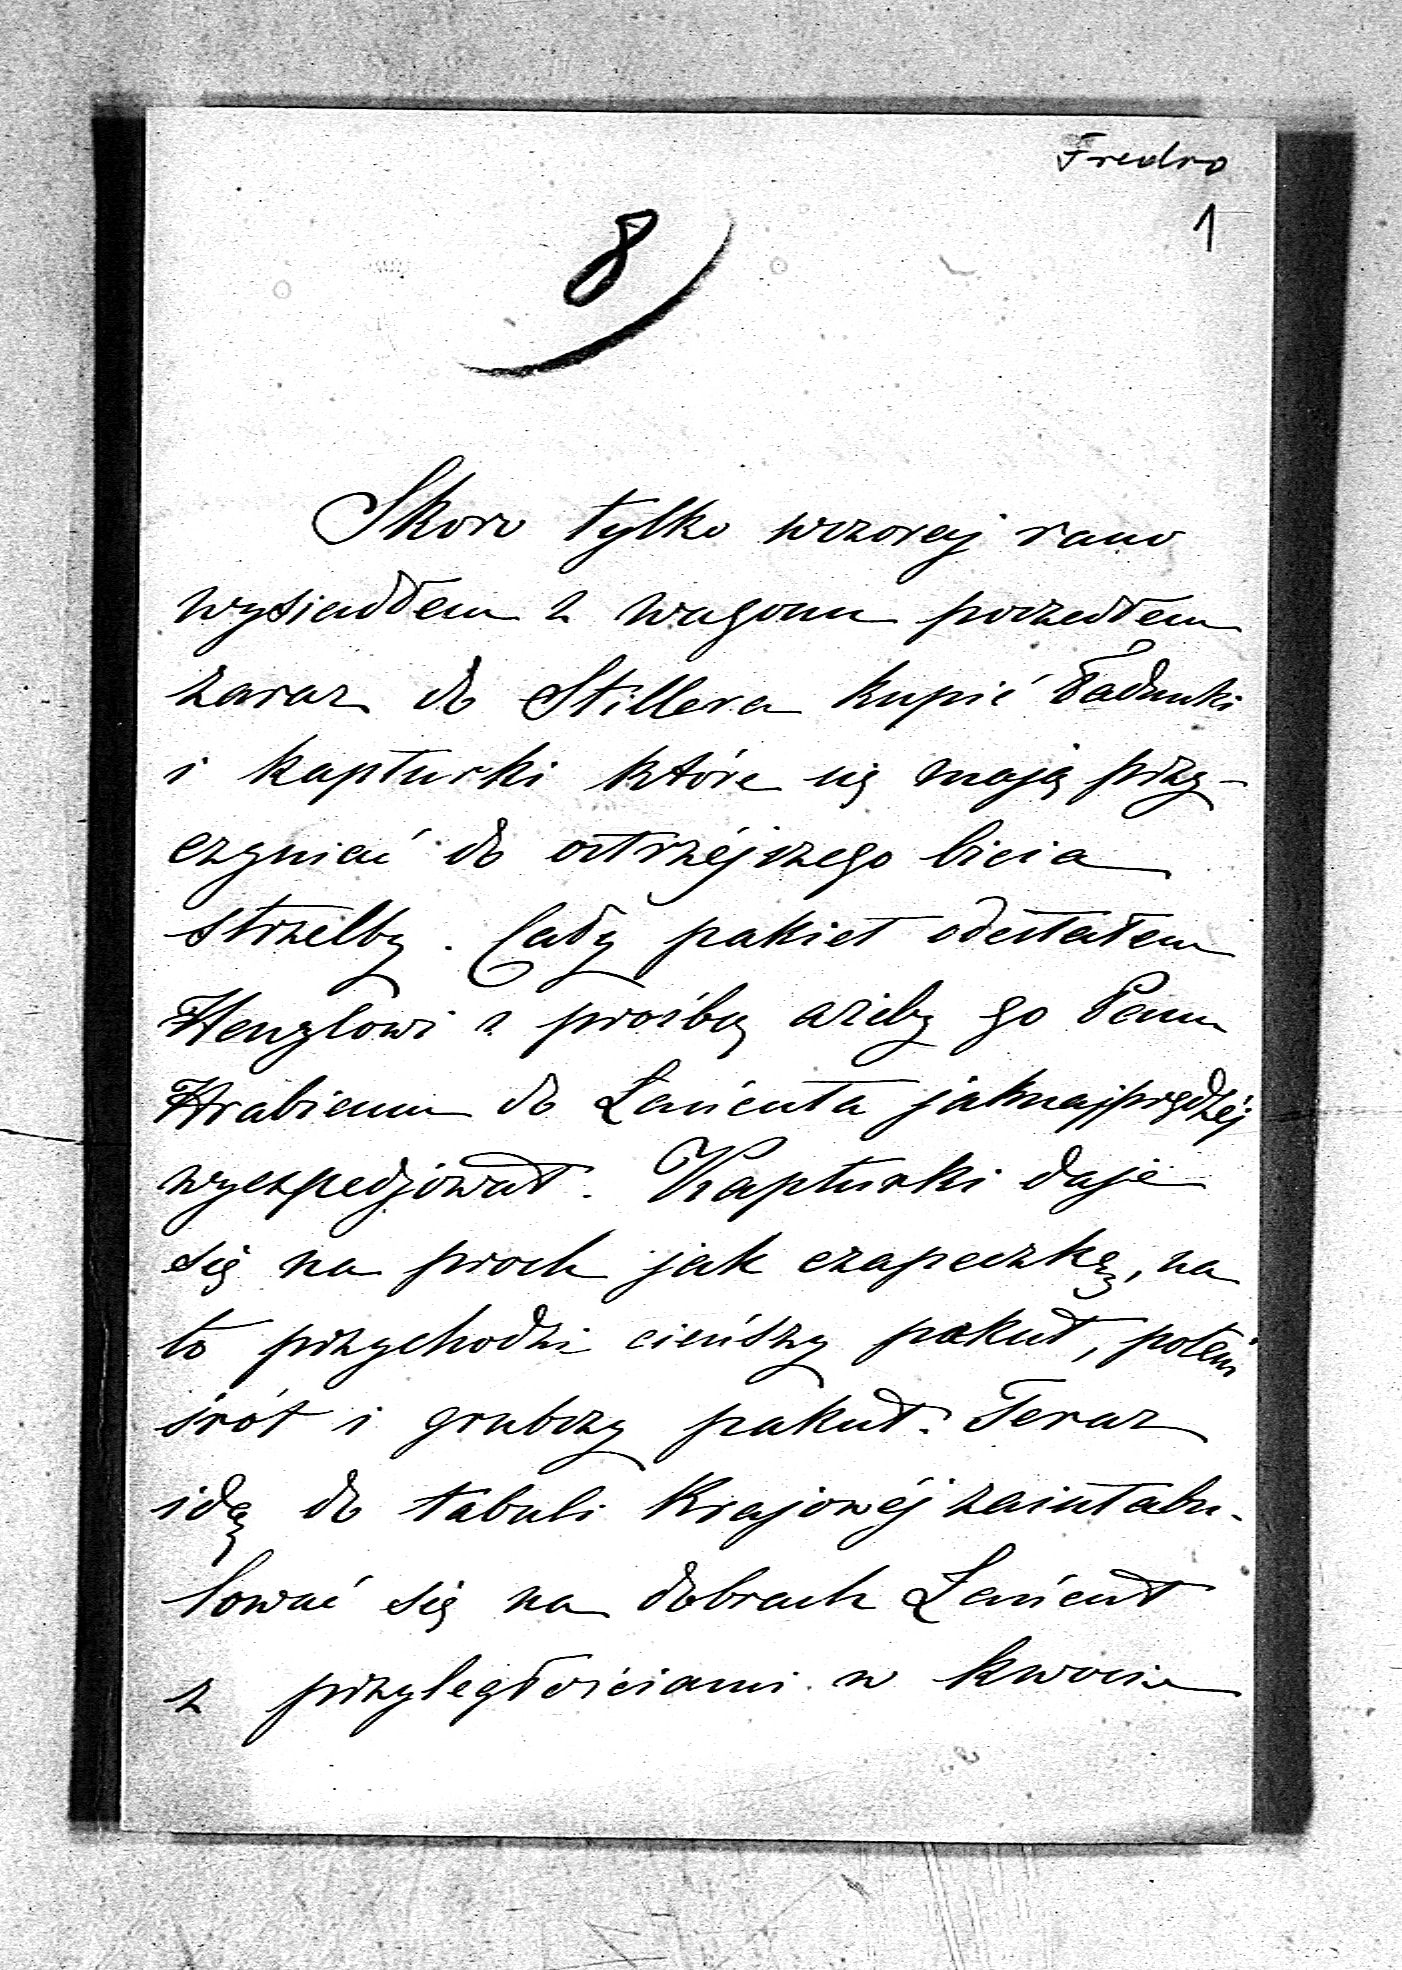 Fredro
1
8
Skoro tylko wczoraj rano
wysiadłem z wagonu poszedłem
zaraz do Stillera kupić ładunki
i kapturki które się mają przy-
czyniać do ostrzéjszego bicia
strzelby. Cały pakiet odesłałem
Henzlowi z prośbą ażeby go Panu
Hrabiemu do Łańcuta jaknajprędzéj
wyexpedjował. Kapturki daje
się na proch jak czapeczkę, na
to przychodzi cieńszy pakuł, potém
śrót i grubszy pakuł. Teraz
idę do tabuli Krajowéj zaintabu-
lować się na dobrach Łańcut
z przyległościami w kwocie